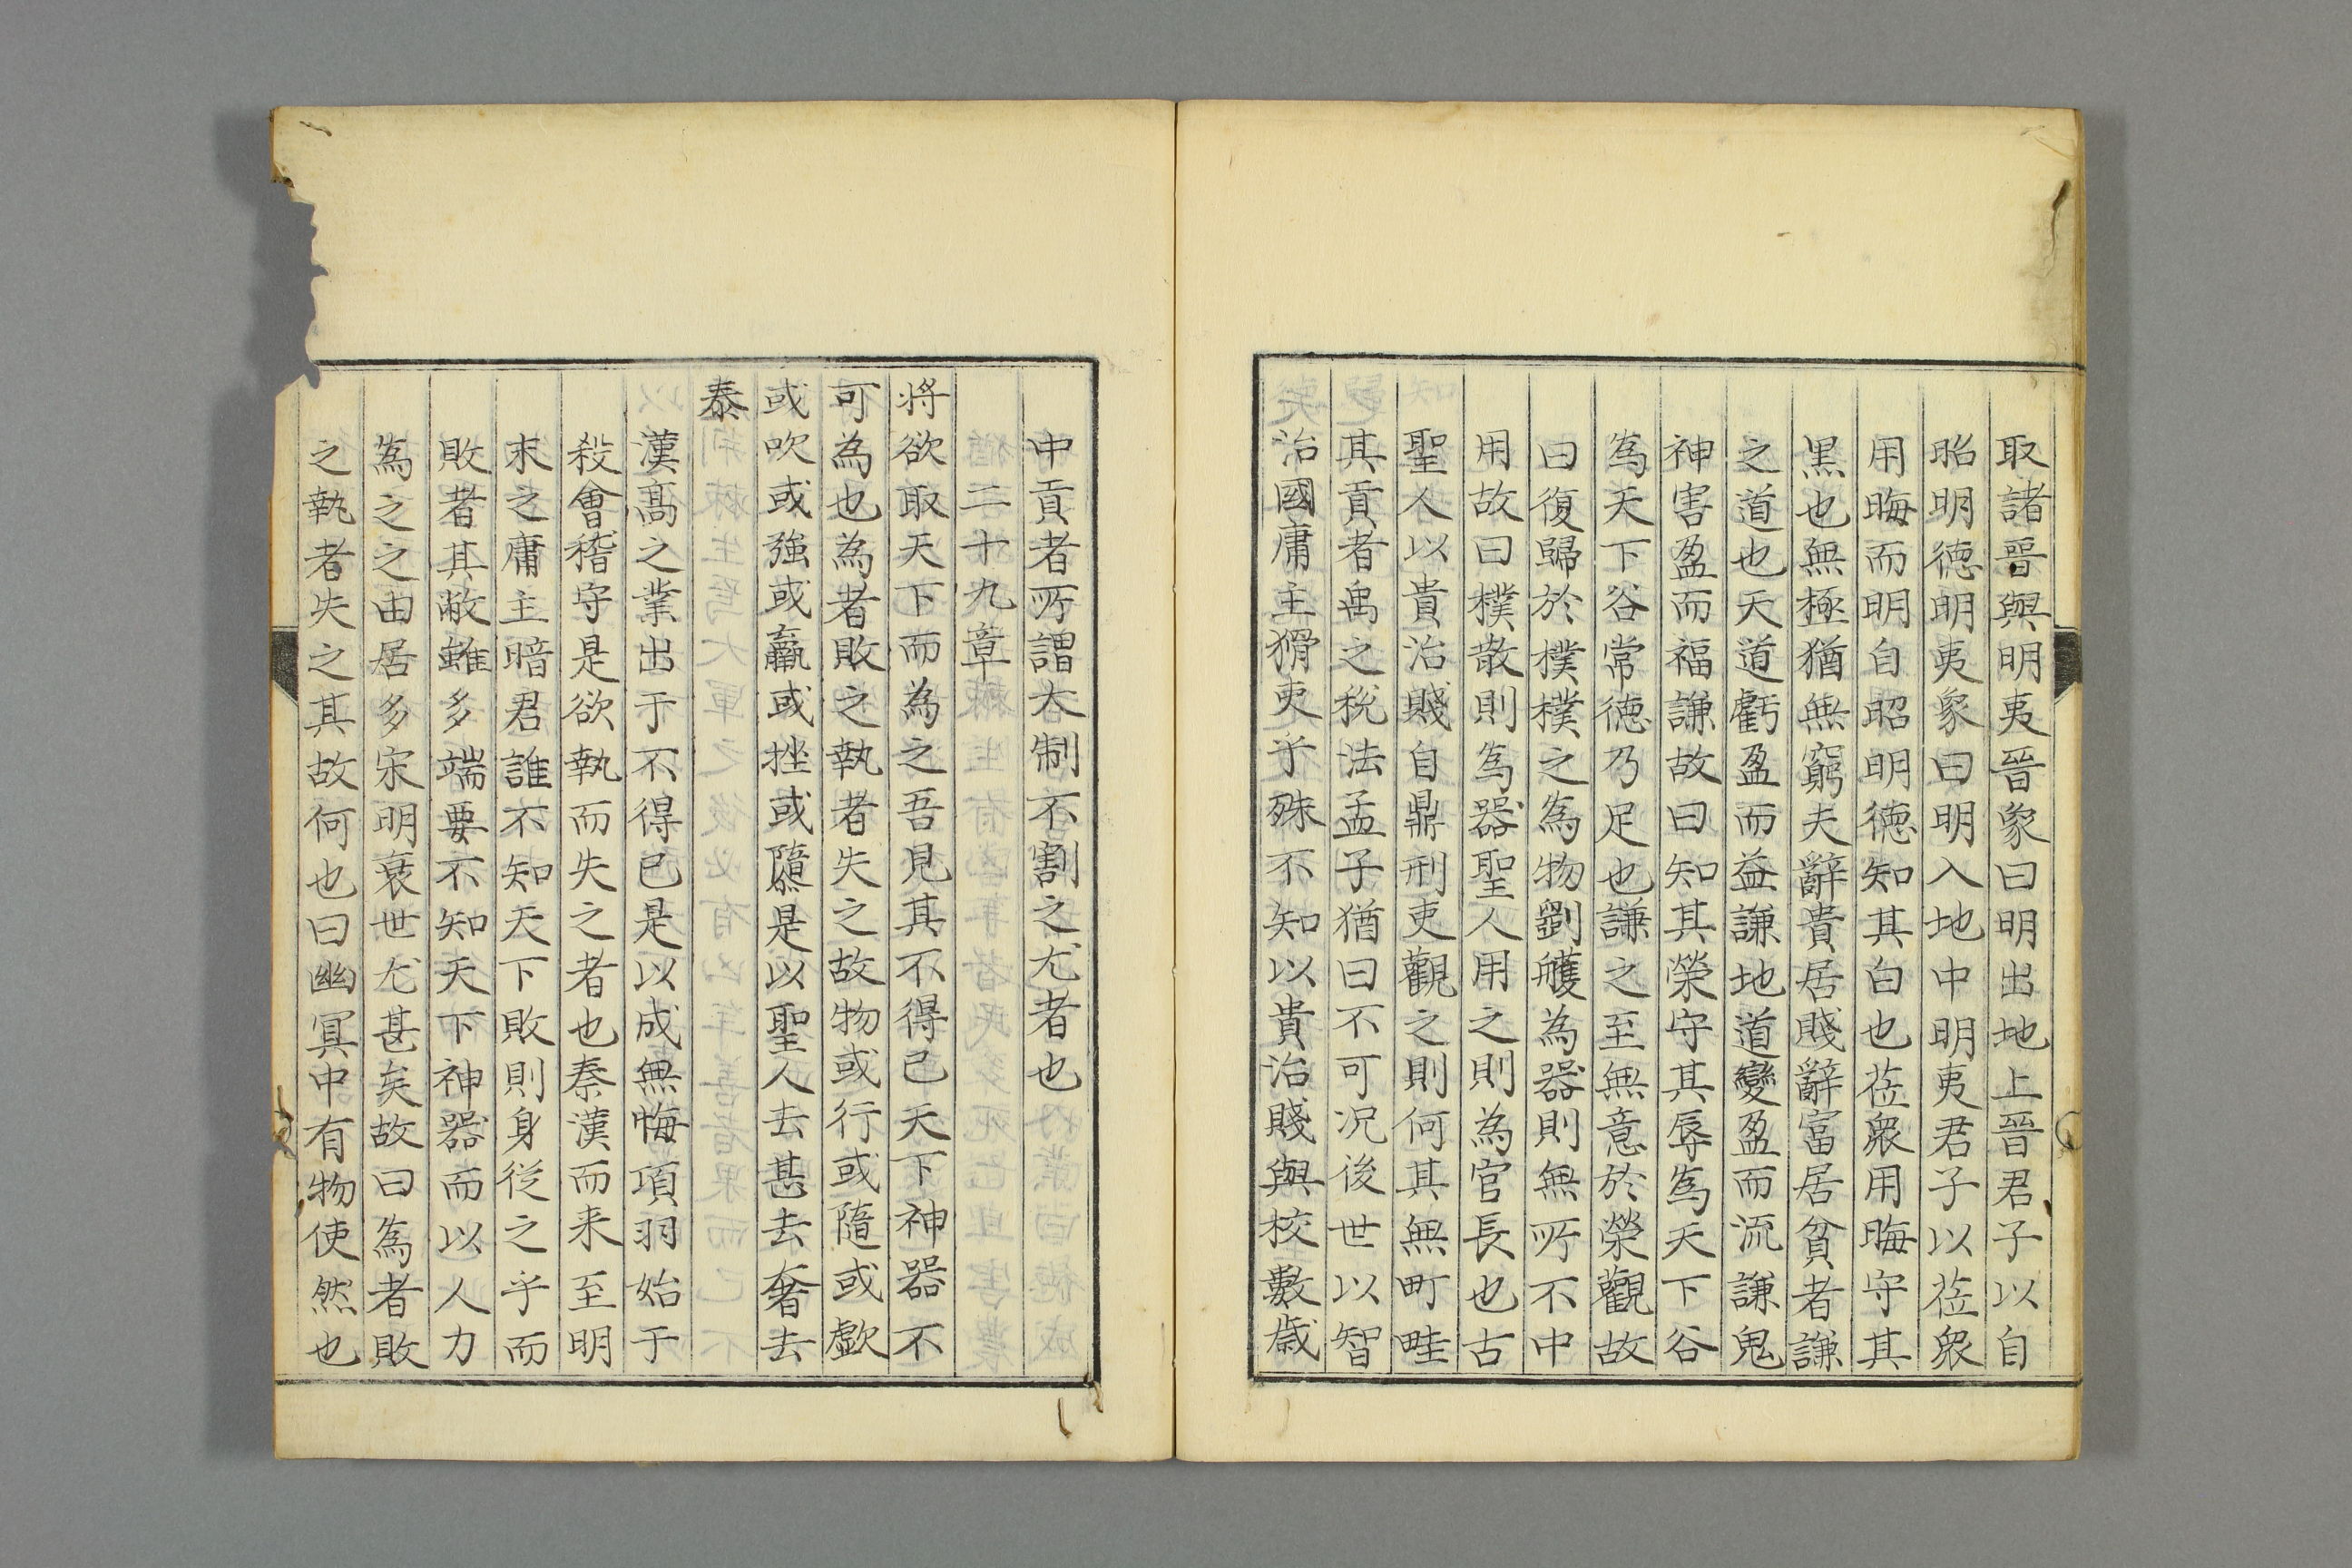 取諸晉與明夷晉象曰明出地上晉君子以自
昭明德明夷象曰明入地中明夷君子以莅衆
用晦而明自昭明德知其白也莅衆用晦守其
黒也無極猶無窮夫辭貴居賤辭富居貧者謙
之道也天道虧盈而益謙地道變盈而流謙鬼
神害盈而福謙故曰知其榮守其辱為天下谷
為天下谷常德乃足也謙之至無意於榮觀故
曰復歸於樸樸之為物劉艧為器則無所不中
用故曰樸散則為器聖人用之則為官長也古
聖人以貴治賤自鼎刑吏觀之則何其無町畦
其貢者禹之稅法孟子猶曰不可况後世以智
治國庸主猾吏乎殊不知以貴治賤與校數歲
中貢者所謂大制不割之尤者也
二十九章
将欲取天下而為之吾見其不得已天下神器不
可為也為者敗之執者失之故物或行或隨或歔
或吹或強或羸或挫或隳是以聖人去甚去奢去
泰
漢髙之業出于不得已是以成無悔項羽始于
殺會稽守是欲執而失之者也秦漢而来至明
末之庸主暗君誰不知天下敗則身従之乎而
敗者其敝雖多端要不知天下神器而以人力
為之之由居多宋明衰世尤甚矣故曰為者敗
之執者失之其故何也曰幽冥中有物使然也